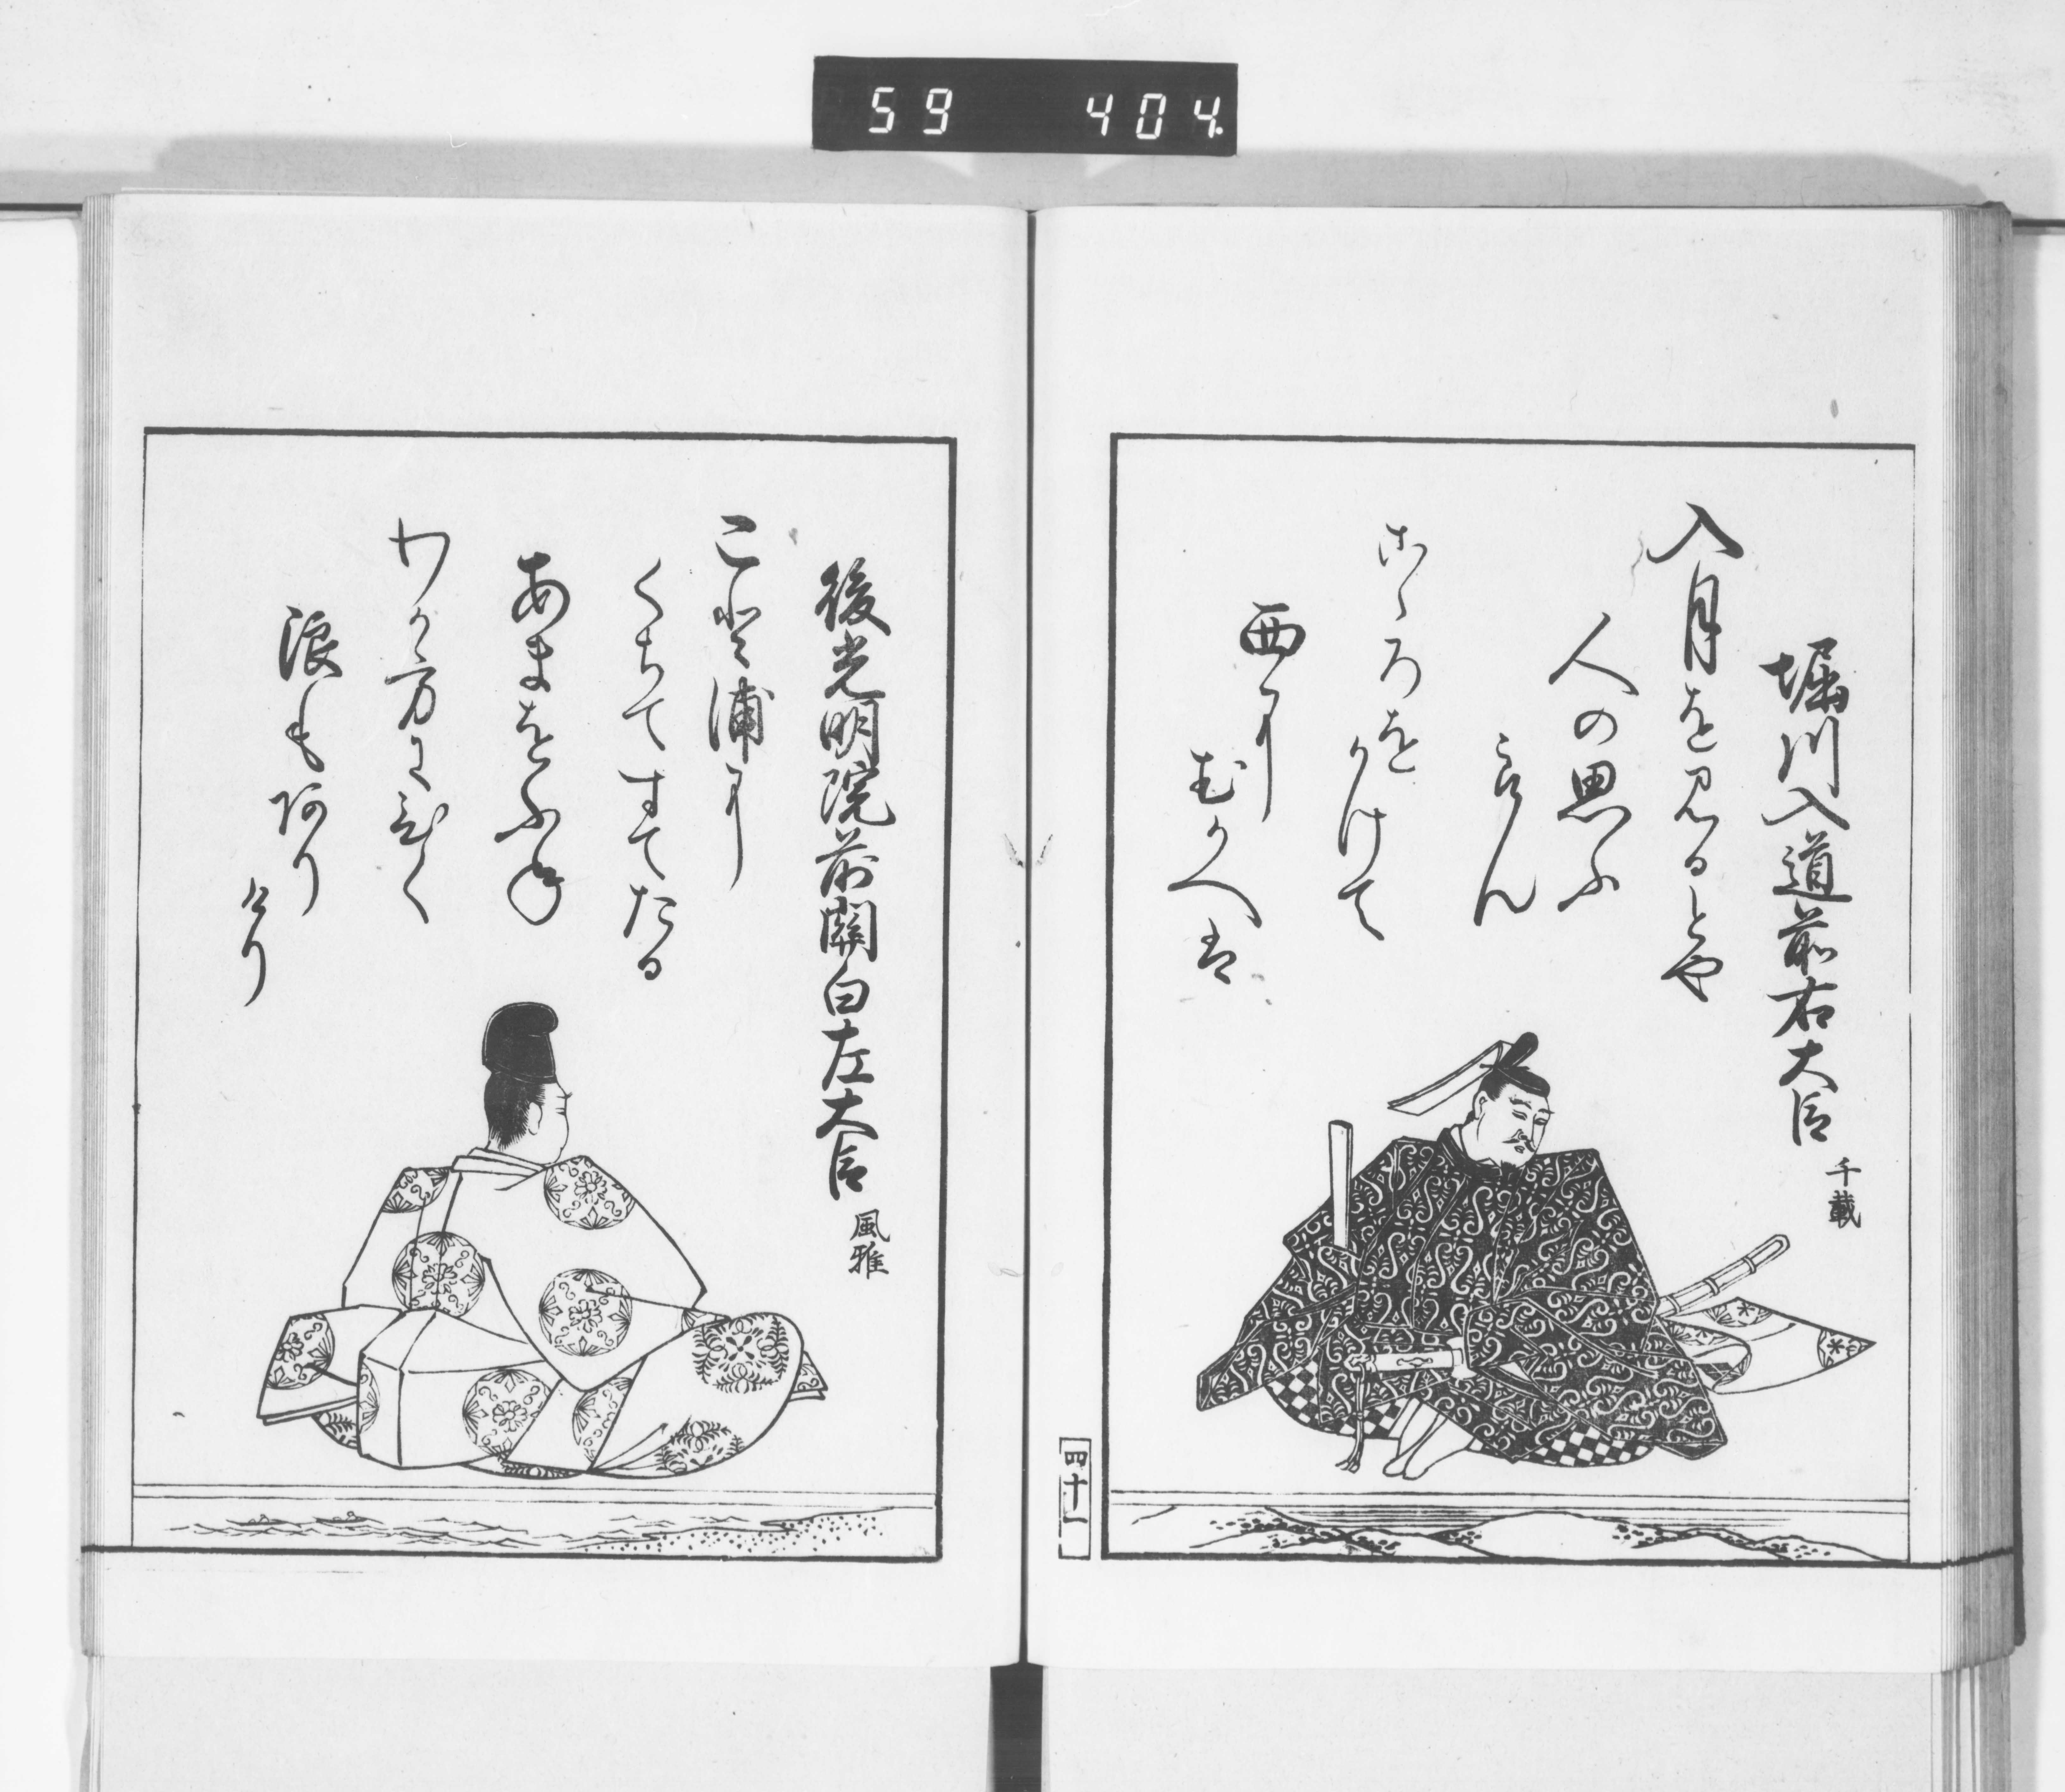 59 404
堀川入道前右大臣
千載
入月を見るとや
人の思ふ
らん
こゝろを
かけて
西に
むかへは
四十一
後光明院前關白左大臣
風雅
こと浦に
くちてすてたる
あまをふね
わか方にひく
浪もあり
けり